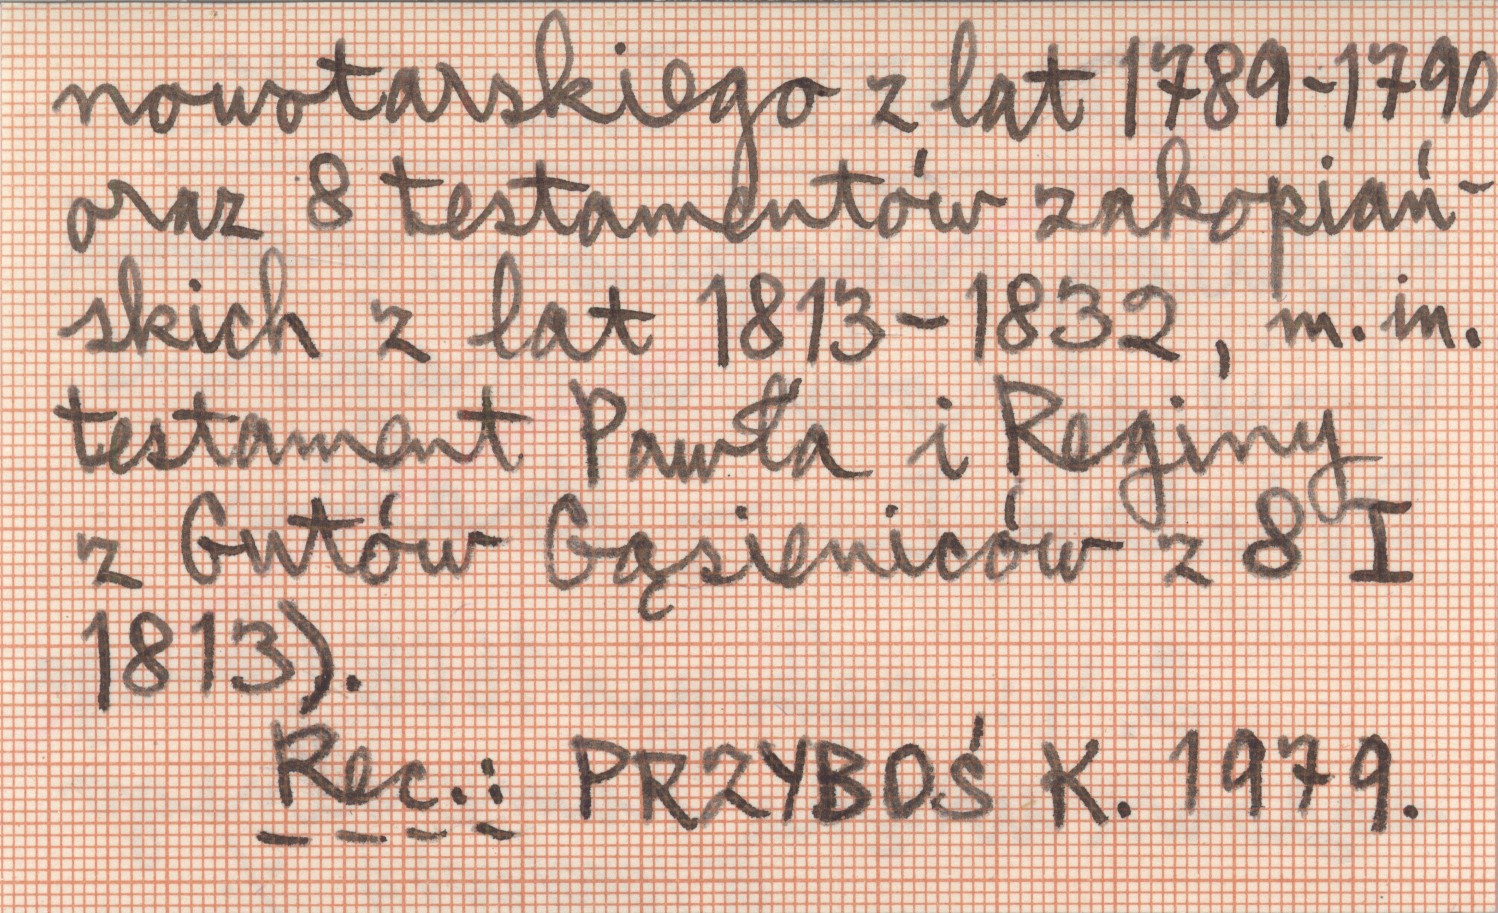 nowotarskiego z lat 1789-1790
oraz 8 testamentów zakopiań-
skich z lat 1813-1832, m. in.
testament Pawła i Reginy
z Gutów Gąsieniców z 8 I
1813).
Rec.: PRZYBOŚ K. 1979.